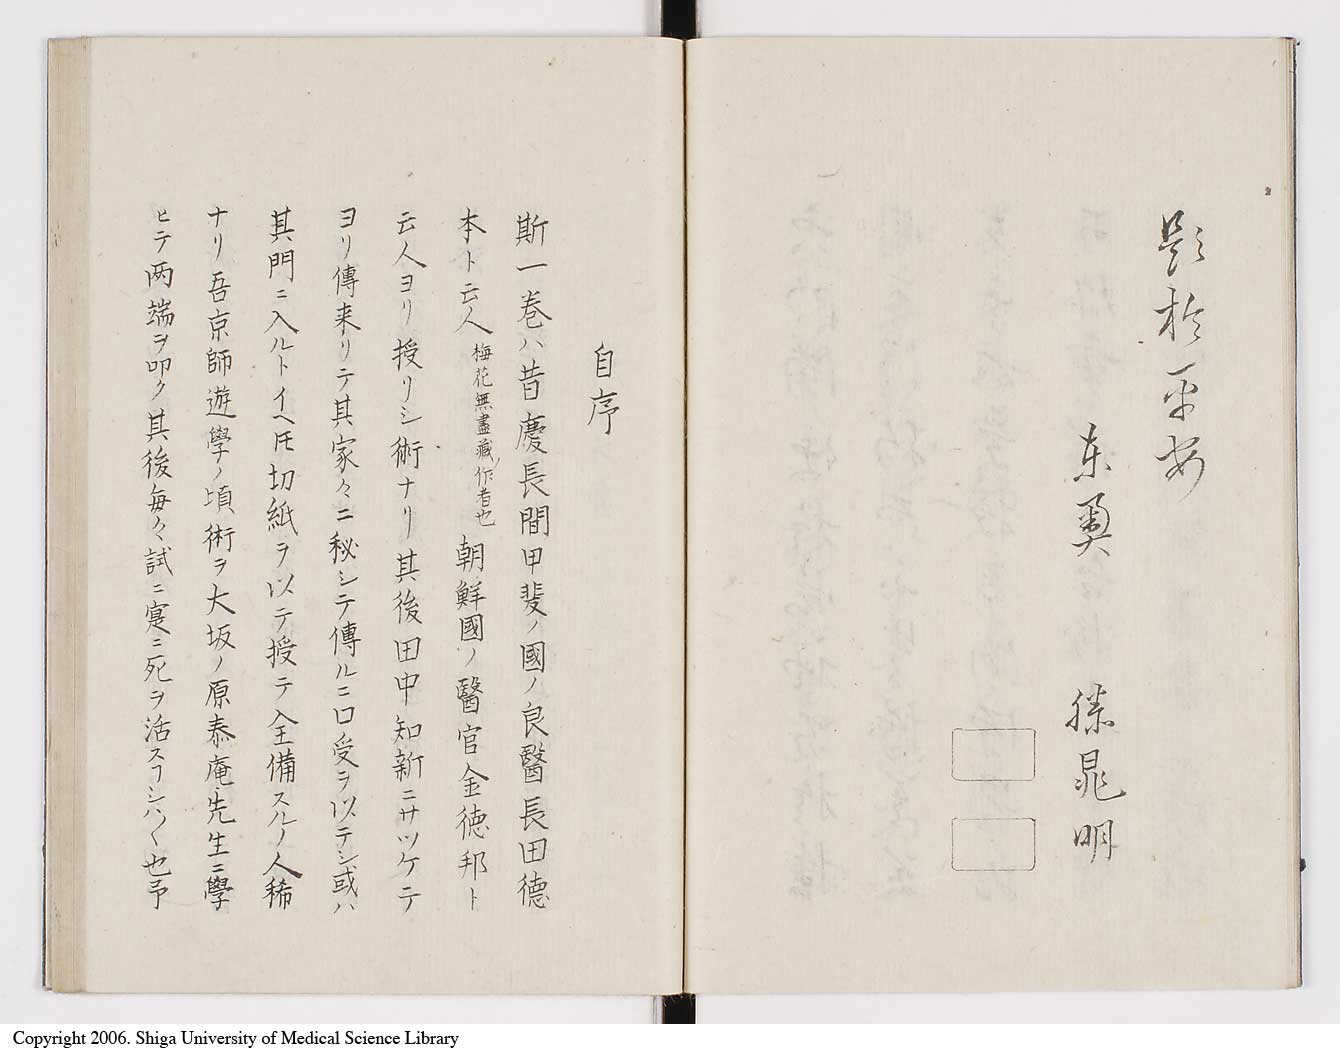 題於平安
東奧 滕晁明
自序
斯一卷ハ昔慶長間甲斐ノ國ノ良醫長田德
本ト云人梅花無盡藏ノ作者也朝鮮國ノ醫官金德邦ト
云人ヨリ授リシ術ナリ其後田中知新ニサツケテ
ヨリ傳来リテ其家々ニ秘シテ傳ルニ口受ヲ以テシ或ハ
其門ニ入ルトイヘ𪜈切紙ヲ以テ授テ全備スルノ人稀
ナリ吾京師遊學ノ頃術ヲ大坂ノ原泰庵先生ニ學
ヒテ两端ヲ叩ク其後每々試ニ寔ニ死ヲ活スヿシハ〱也予
Copyright 2006. Shiga University of Medical Science Library